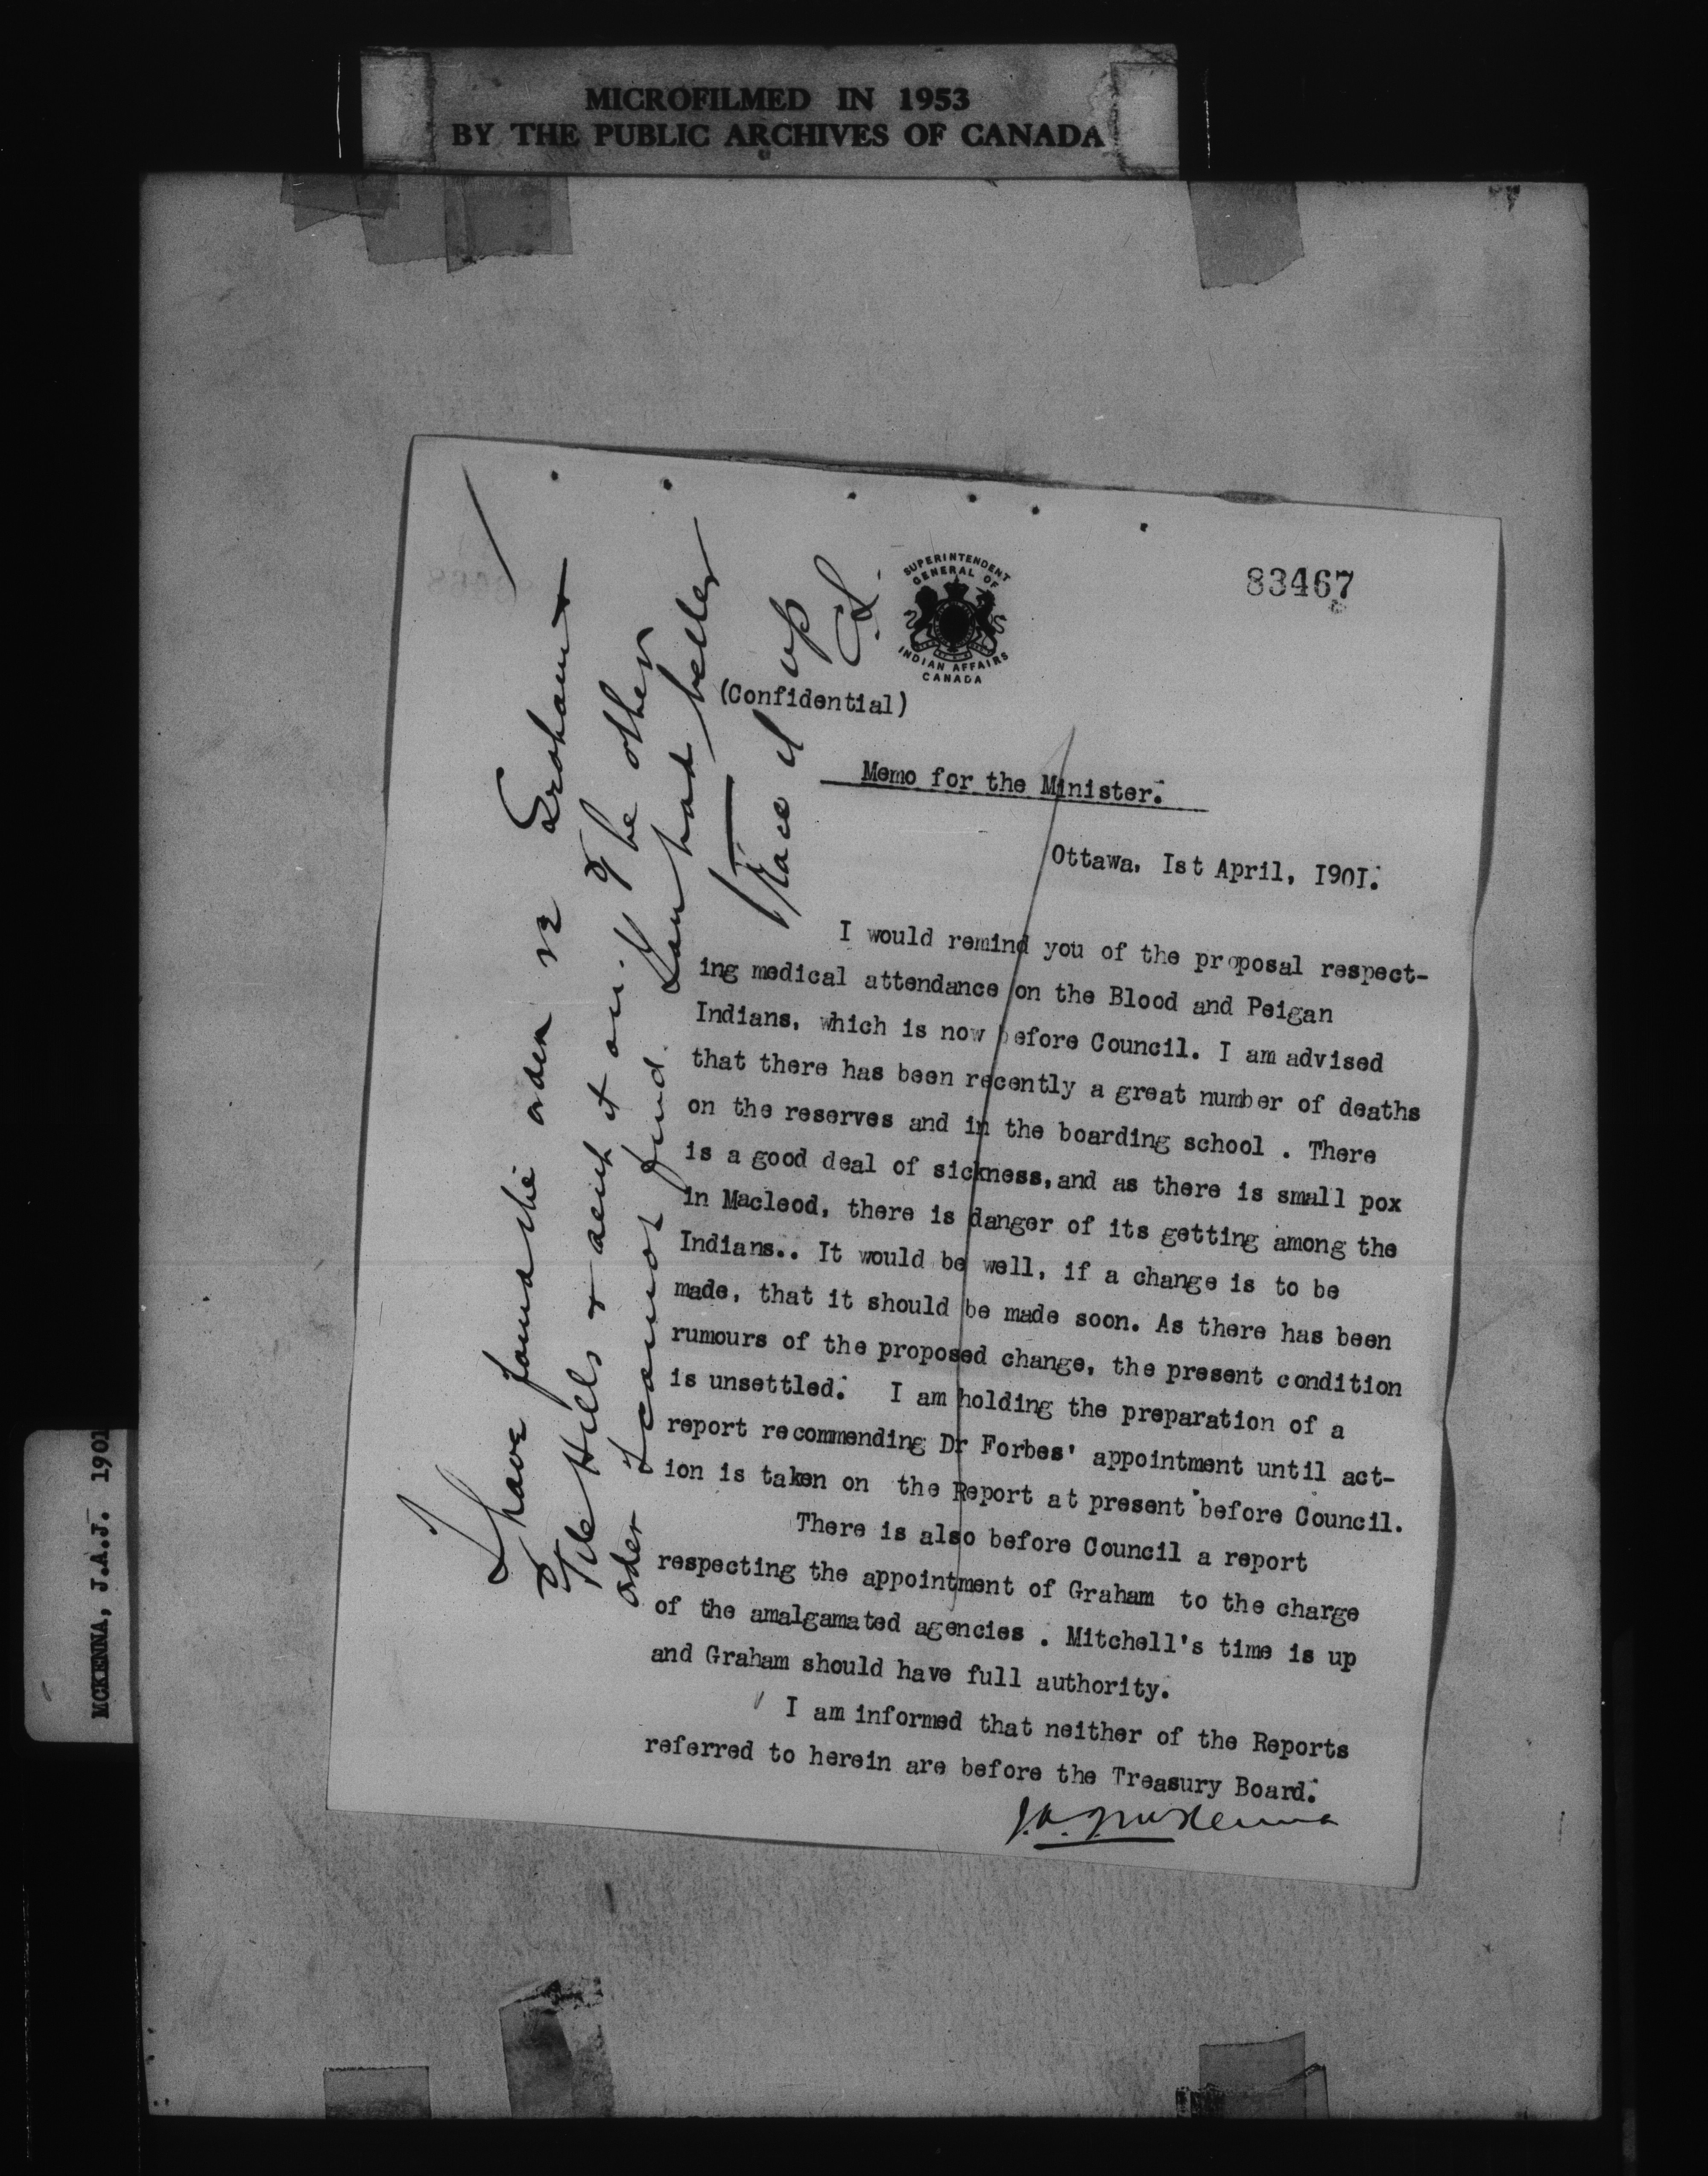 MICROFILMED IN 1953
BY THE PUBLIC ARCHIVES OF CANADA
83467
SUPERINTENDENT
GENERAL OF
INDIAN AFFAIRS
CANADA
(Confidential)
Memo for the Minister.
Ottawa. Ist April, I90I.
I would remind you of the proposal respect-
ing medical attendance on the Blood and Peigan
Indians, which is now before Council. I am advised
that there has been recently a great number of deaths
on the reserves and in the boarding school . There
is a good deal of sickness,and as there is small pox
in Macleod, there is danger of its getting among the
Indians.. It would be well, if a change is to be
made, that it should be made soon. As there has been
rumours of the proposed change, the present condition
is unsettled. I am holding the preparation of a
report recommending Dr Forbes' appointment until act-
ion is taken on the Report at present before Council.
There is also before Council a report
respecting the appointment of Graham to the charge
of the amalgamated agencies . Mitchell's time is up
and Graham should have full authority.
I am informed that neither of the Reports
referred to herein are before the Treasury Board.
J.A.J. McKenna
I have found the order re Graham
File Hills & sent it on. The other
order I cannot find. You had better
trace it up
MCKENNA, J.A.J. 1901